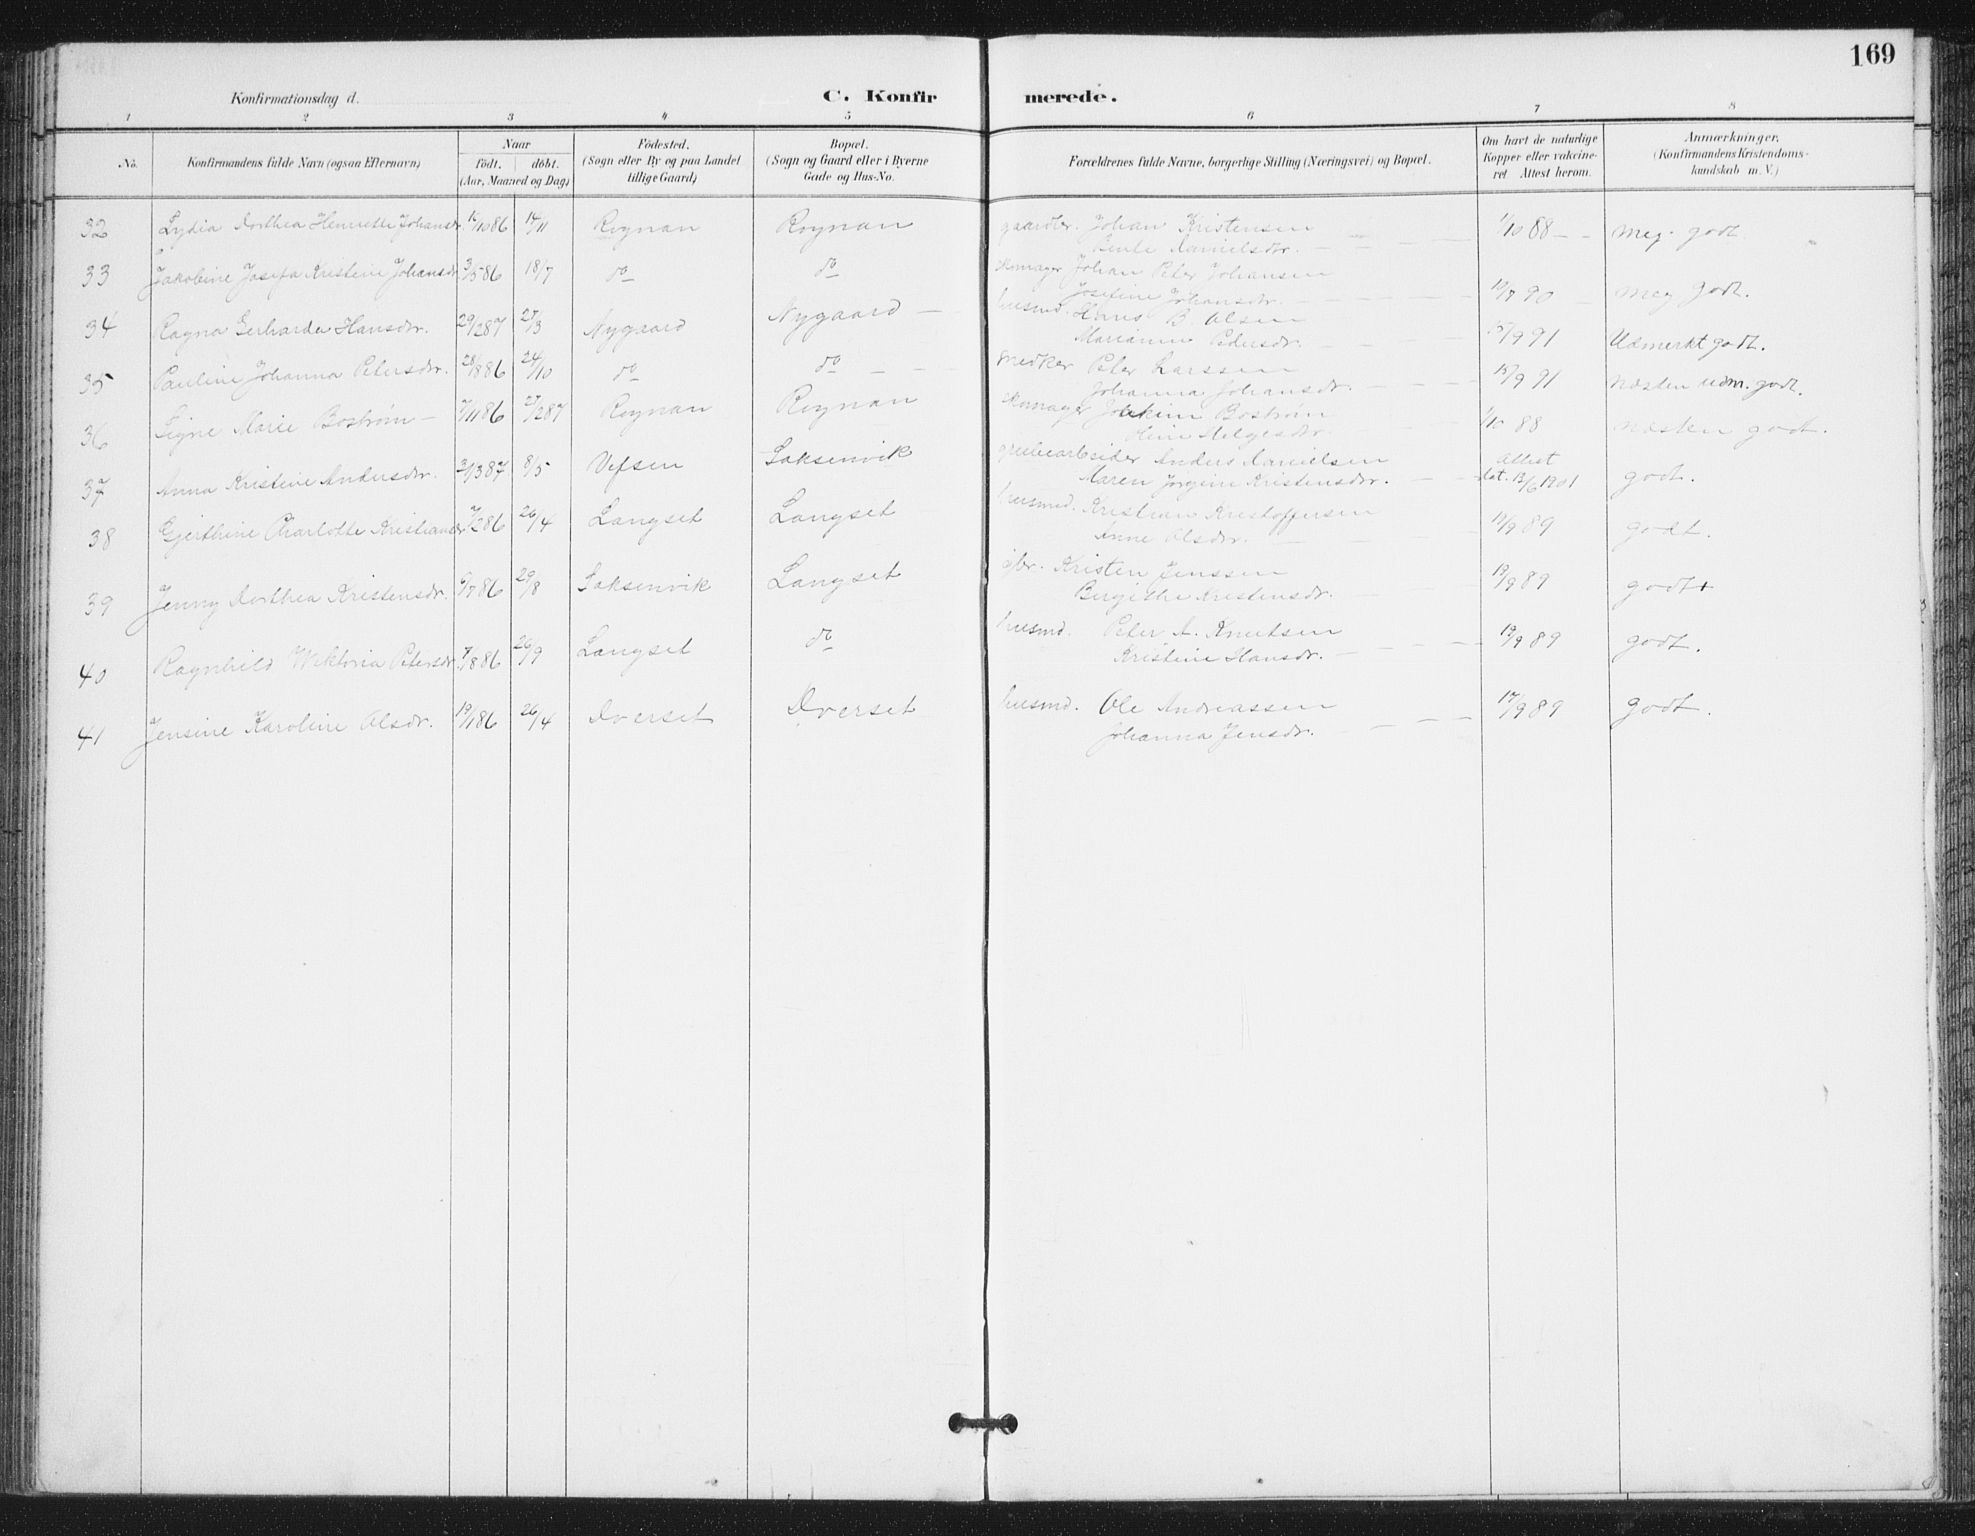 169
Konfirmationsdag d.
C. Konfirmerede.
1 2 3 4 5 6 7 8
No. Konfirmandens fulde Navn (ogsaa Efternavn) Naar født. døbt. (Aar, Maaned og Dag) Fødested. (Sogn eller By og paa Landet tillige Gaard) Bopæl. (Sogn og Gaard eller i Byerne Gade og Hus-No. Forældrenes fulde Navne, borgerlige Stilling (Næringsvei) og Bopæl. Om havt de naturlige Kopper eller vakcineret Attest herom. Anmærkninger. (Konfirmandens Kristendomskundskab m. V.)
32 Lydia Dorthea Henriette Johansdr. 15/10 86 14/11 Rognan Rognan gaardbr. Johan Kristensen 1/10 88 meg. godt
Danielsdr.
33 Jakobine Josefa Kristine Johansdr. 3/5 86 18/7 do do skomager Johan Peter Johansen 19/7 90 meg godt.
Josefine Johansdr.
34 Ragna Gerharda Hansdr. 29/2 87 27/3 Nygaard Nygaard husmd. Hans B. Olsen 15/9 91 Udmerkt godt.
Marianne Pedersdr.
35 Pauline Johanna Petersdr. 28/8 86 24/10 do do Peter Larssen 15/9 91 næsten udm. godt.
Johanna Johansdr.
36 Signe Marie Bostrøm 7/11 86 27/2 87 Rognan Rognan skomager Joakim Bostrøm 1/10 88 næsten godt.
Helgesdr.
37 Anna Kristine Andersdr. 31/3 87 8/5 Vefsen Saksenvik grubearbeider Anders Danielsen Attest dat. 13/6 1901 godt.
Maren Jørgine Kristensdr.
38 Gjerthine Charlotte Kristiansdr. 7/2 86 26/4 Langset Langset husmd. Kristian Kristoffersen 19/9 89 godt.
Anne Olsdr.
39 Jenny Dorthea Kristensdr. 6/7 86 29/8 Saksenvik Langset gbr. Kristen Jenssen 19/9 89 godt
Birgithe Kristensdr.
40 Ragnhild Viktoria Petersdr. 7/8 86 26/9 Langset do husmd. Peter A. Knutsen 19/9 89 godt.
Kristine Hansdr.
41 Jensine Karoline Olsdr. 19/1 86 26/4 Dverset Dverset husmd. Ole Andreassen 17/9 89 godt.
Johanna Jensdr.